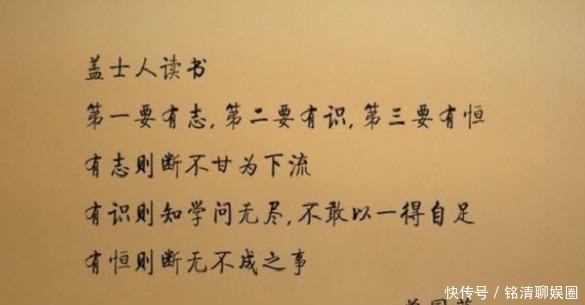 盖士人读书
第一要有志，第二要有识，第三要有恒
有志则断不甘为下流
有识则知学问无尽，不敢以一得自足
有恒则断无不成之事
快传号／铭清聊娱圈